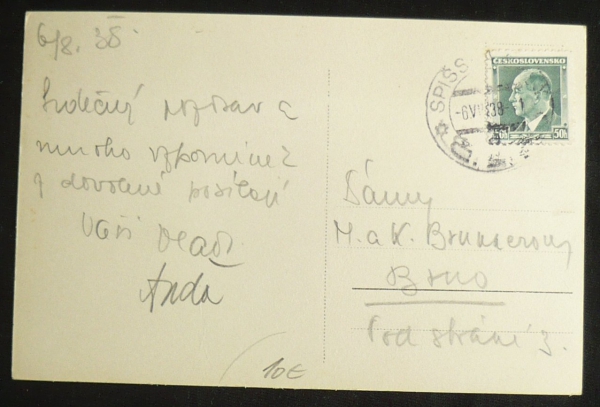 6/8. 38.
Srdečný pozdrav a
mnoho vzpomínek
z dovolené posílají
Vaši
ČESKOSLOVENSKO
50h 50h
SPIŠS
-6.VIII.38-
Dámy
M. a K. Brunnerovy
Brno
Pod strání 3.
10€